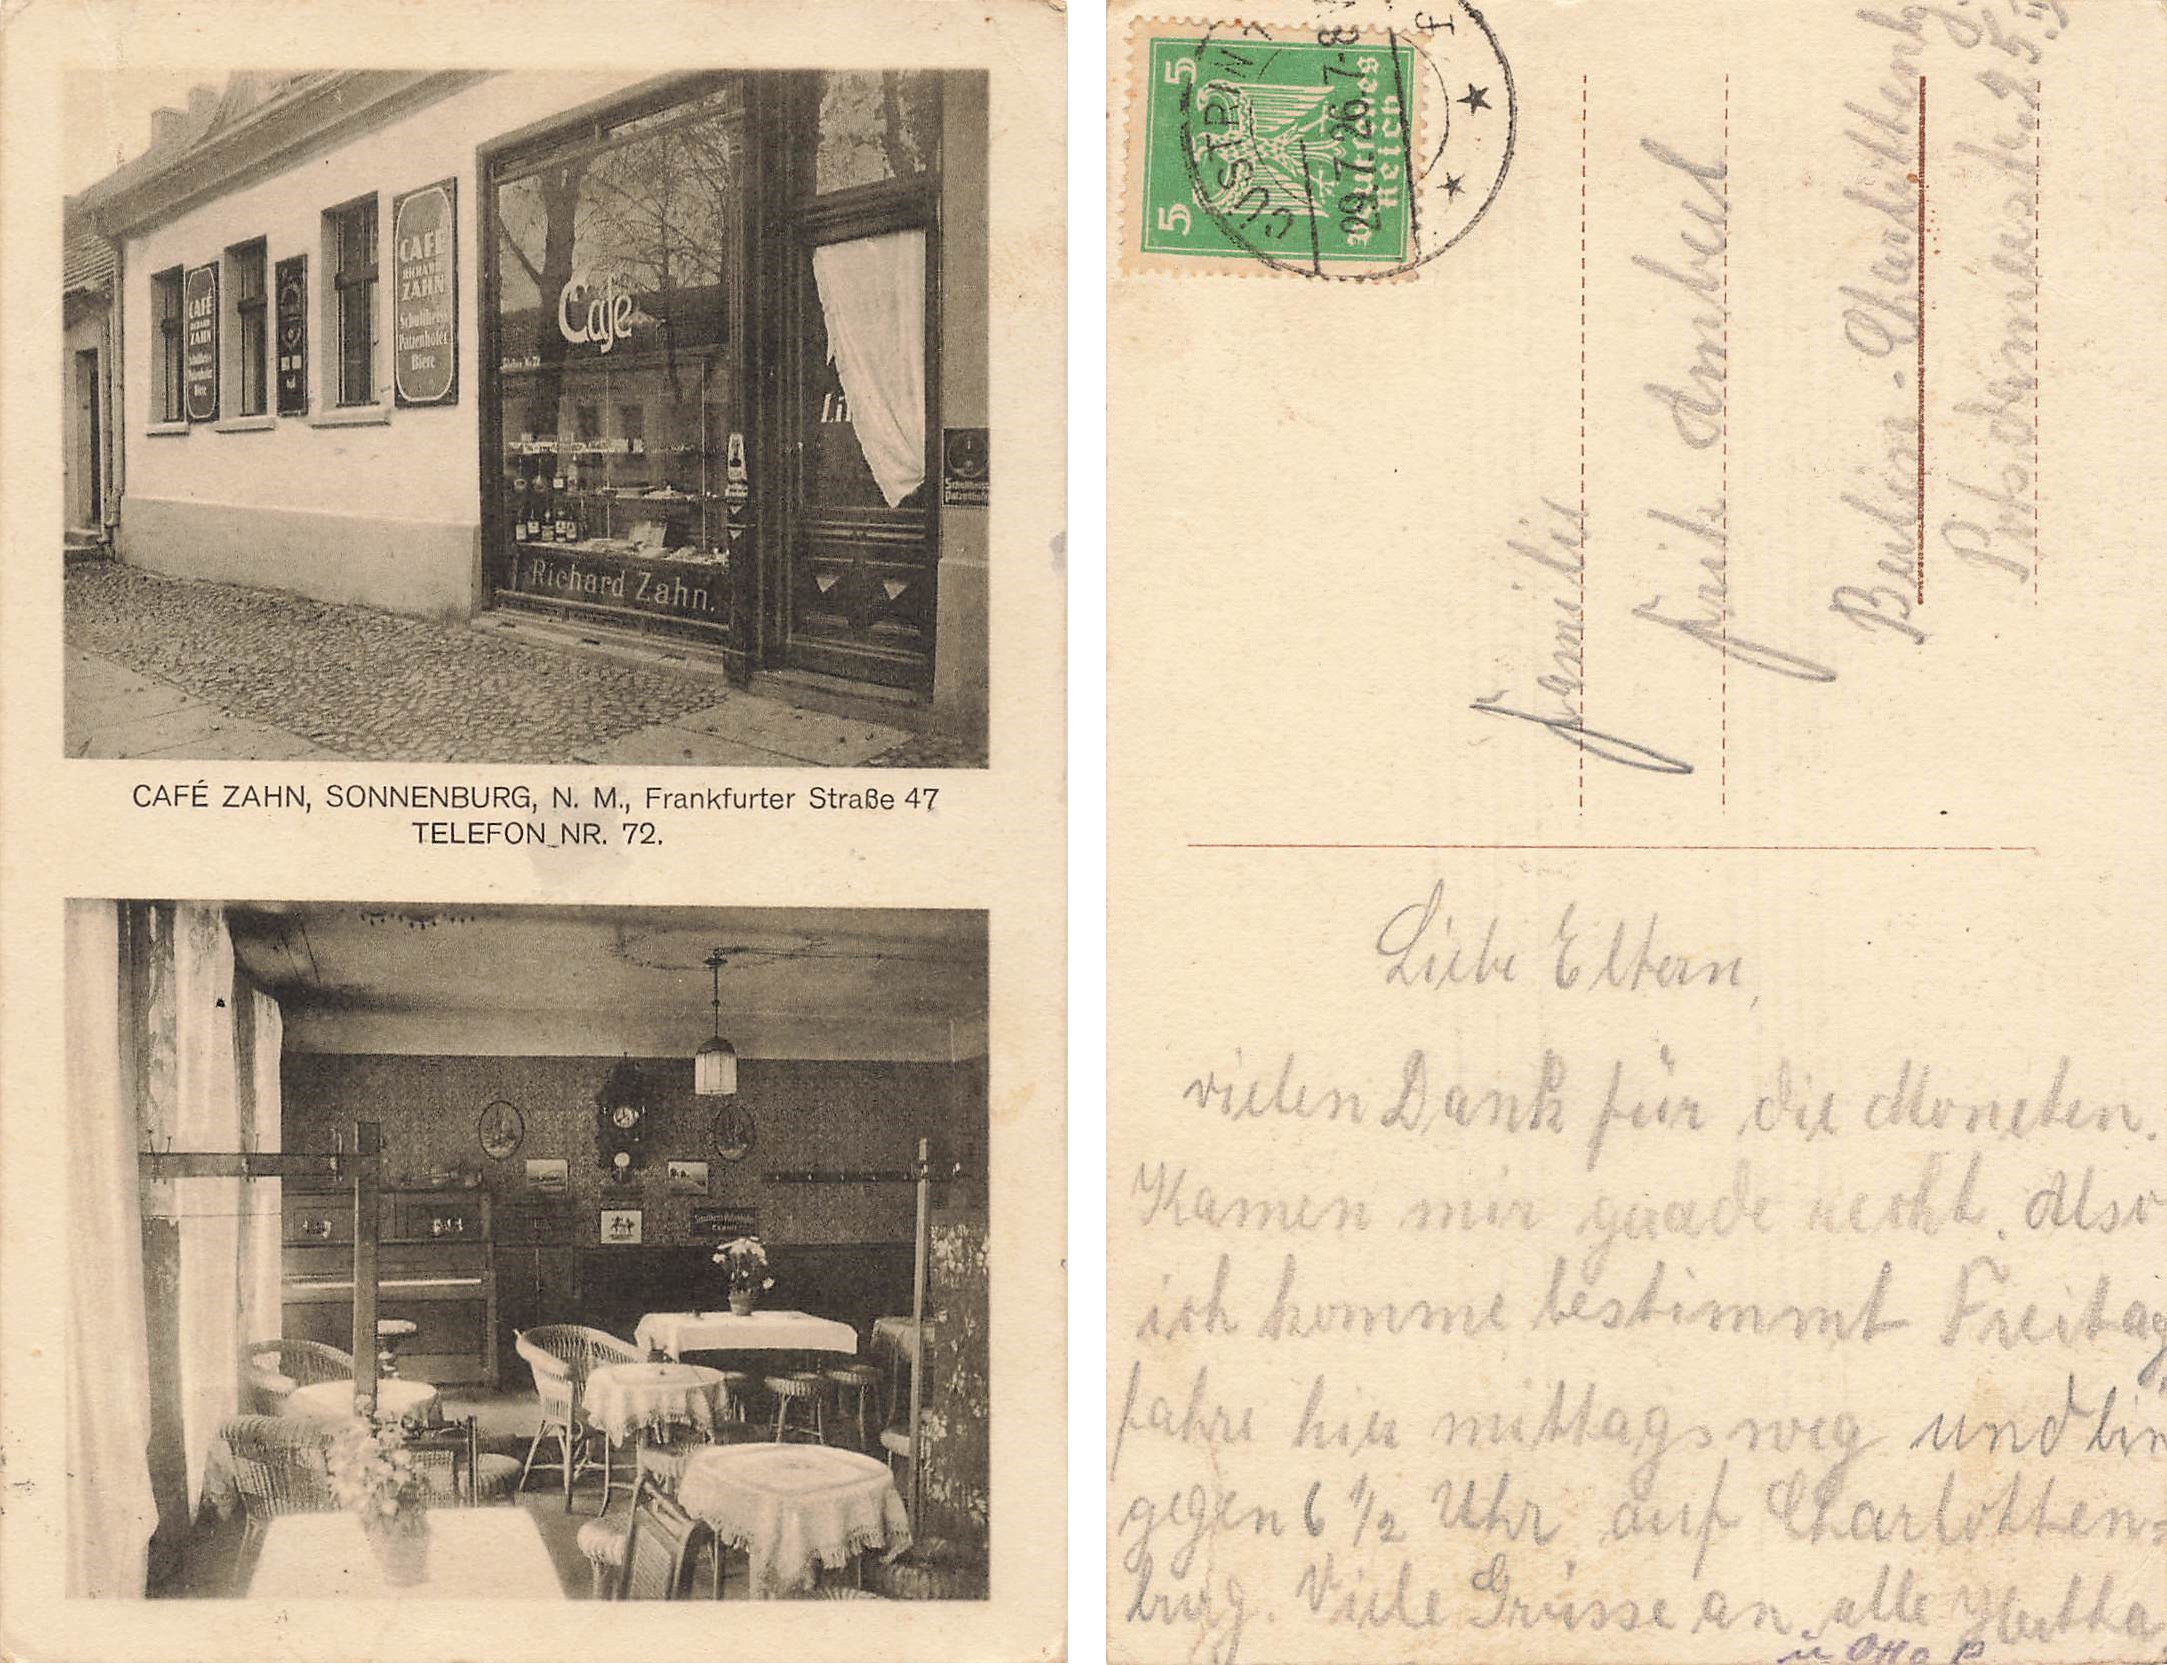 CAFÉ
RICHARD
ZAHN
Schultheiss
Patzenhofer
Biere
CAFÉ
RICHARD
ZAHN
Schultheiss
Patzenhofer
Biere
Cafe
Richard Zahn.
Li
Schultheiss
Patzenhofer
CAFÉ ZAHN, SONNENBURG, N. M., Frankfurter Straße 47
TELEFON NR. 72.
5 5
Deutsches
Reich
CÜSTRIN
29.7.26.7-8V
Familie
Berlin-Charlottenbg.
Liebe Eltern,
vielen Dank für die Moneten.
Kamen mir gerade recht. Also
ich komme bestimmt Freitag,
fahre hier mittags weg und bin
gegen 6 1/2 Uhr auf Charlotten=
burg. Viele Grüsse an alle Hertha.
u Otto P